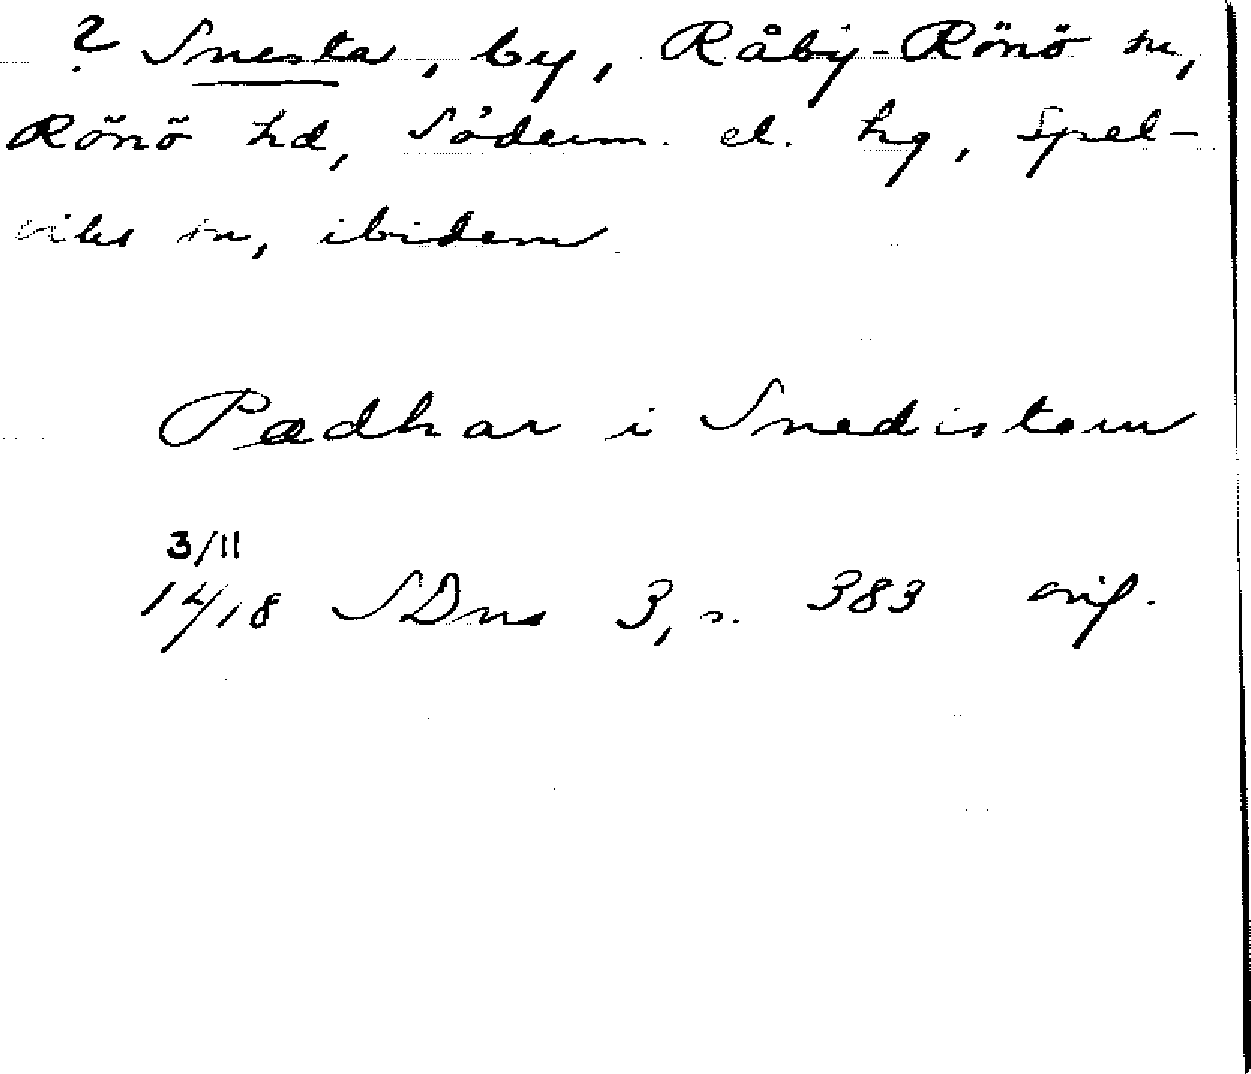 ? Snesta, by, Råby-Rönö sn,
Rönö hd, Söderm. el. hg, Spel-
viks sn, ibidem
Pædhar i Snedistom
3/11
14/18 SDns 3, s. 383 orig.